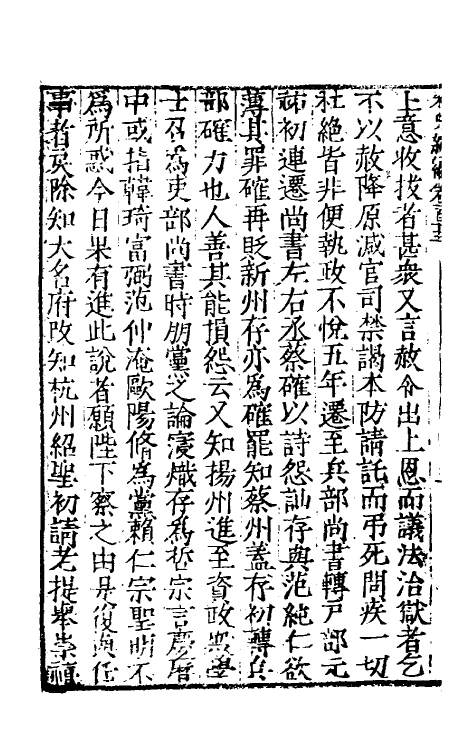 上意收拔者甚衆又言赦令出上恩而議法治獄者乞
不以赦降原減官司禁謁本防請託而弔死問疾一切
杜絕皆非便執政不悅五年遷至兵部尚書轉戸部元
祐初連遷尚書左右丞蔡確以詩怨訕存與范純仁欲
薄其罪確再貶新州存亦爲確罷知蔡州蓋存初轉兵
部確力也人善其能損怨云又知揚州進至資政殿學
士召爲吏部尚書時朋黨之論寖熾存爲哲宗言慶曆
中或指韓琦富弼范仲淹歐陽脩爲黨賴仁宗聖明不
爲所惑今日果有進此說者願陛下察之由是復與任
事者戾除知大名府改知杭州紹聖初請老提舉崇禧